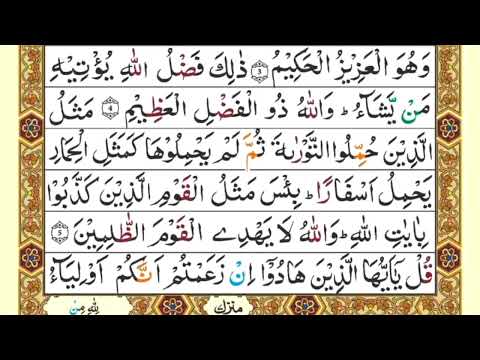 وَهُوَ الْعَزِيْزُ الْحَكِيْمُ ۝٣ ذٰلِكَ فَضْلُ اللّٰهِ يُؤْتِيْهِ
مَنْ يَّشَآءُ ؕ وَاللّٰهُ ذُو الْفَضْلِ الْعَظِيْمِ ۝٤ مَثَلُ
الَّذِيْنَ حُمِّلُوا التَّوْرٰىةَ ثُمَّ لَمْ يَحْمِلُوْهَا كَمَثَلِ الْحِمَارِ
يَحْمِلُ اَسْفَارًا ؕ بِئْسَ مَثَلُ الْقَوْمِ الَّذِيْنَ كَذَّبُوْا
بِاٰيٰتِ اللّٰهِ ؕ وَاللّٰهُ لَا يَهْدِي الْقَوْمَ الظّٰلِمِيْنَ ۝٥
قُلْ يٰٓاَيُّهَا الَّذِيْنَ هَادُوْٓا اِنْ زَعَمْتُمْ اَنَّكُمْ اَوْلِيَآءُ
لِلّٰهِ مِنْ
منزل